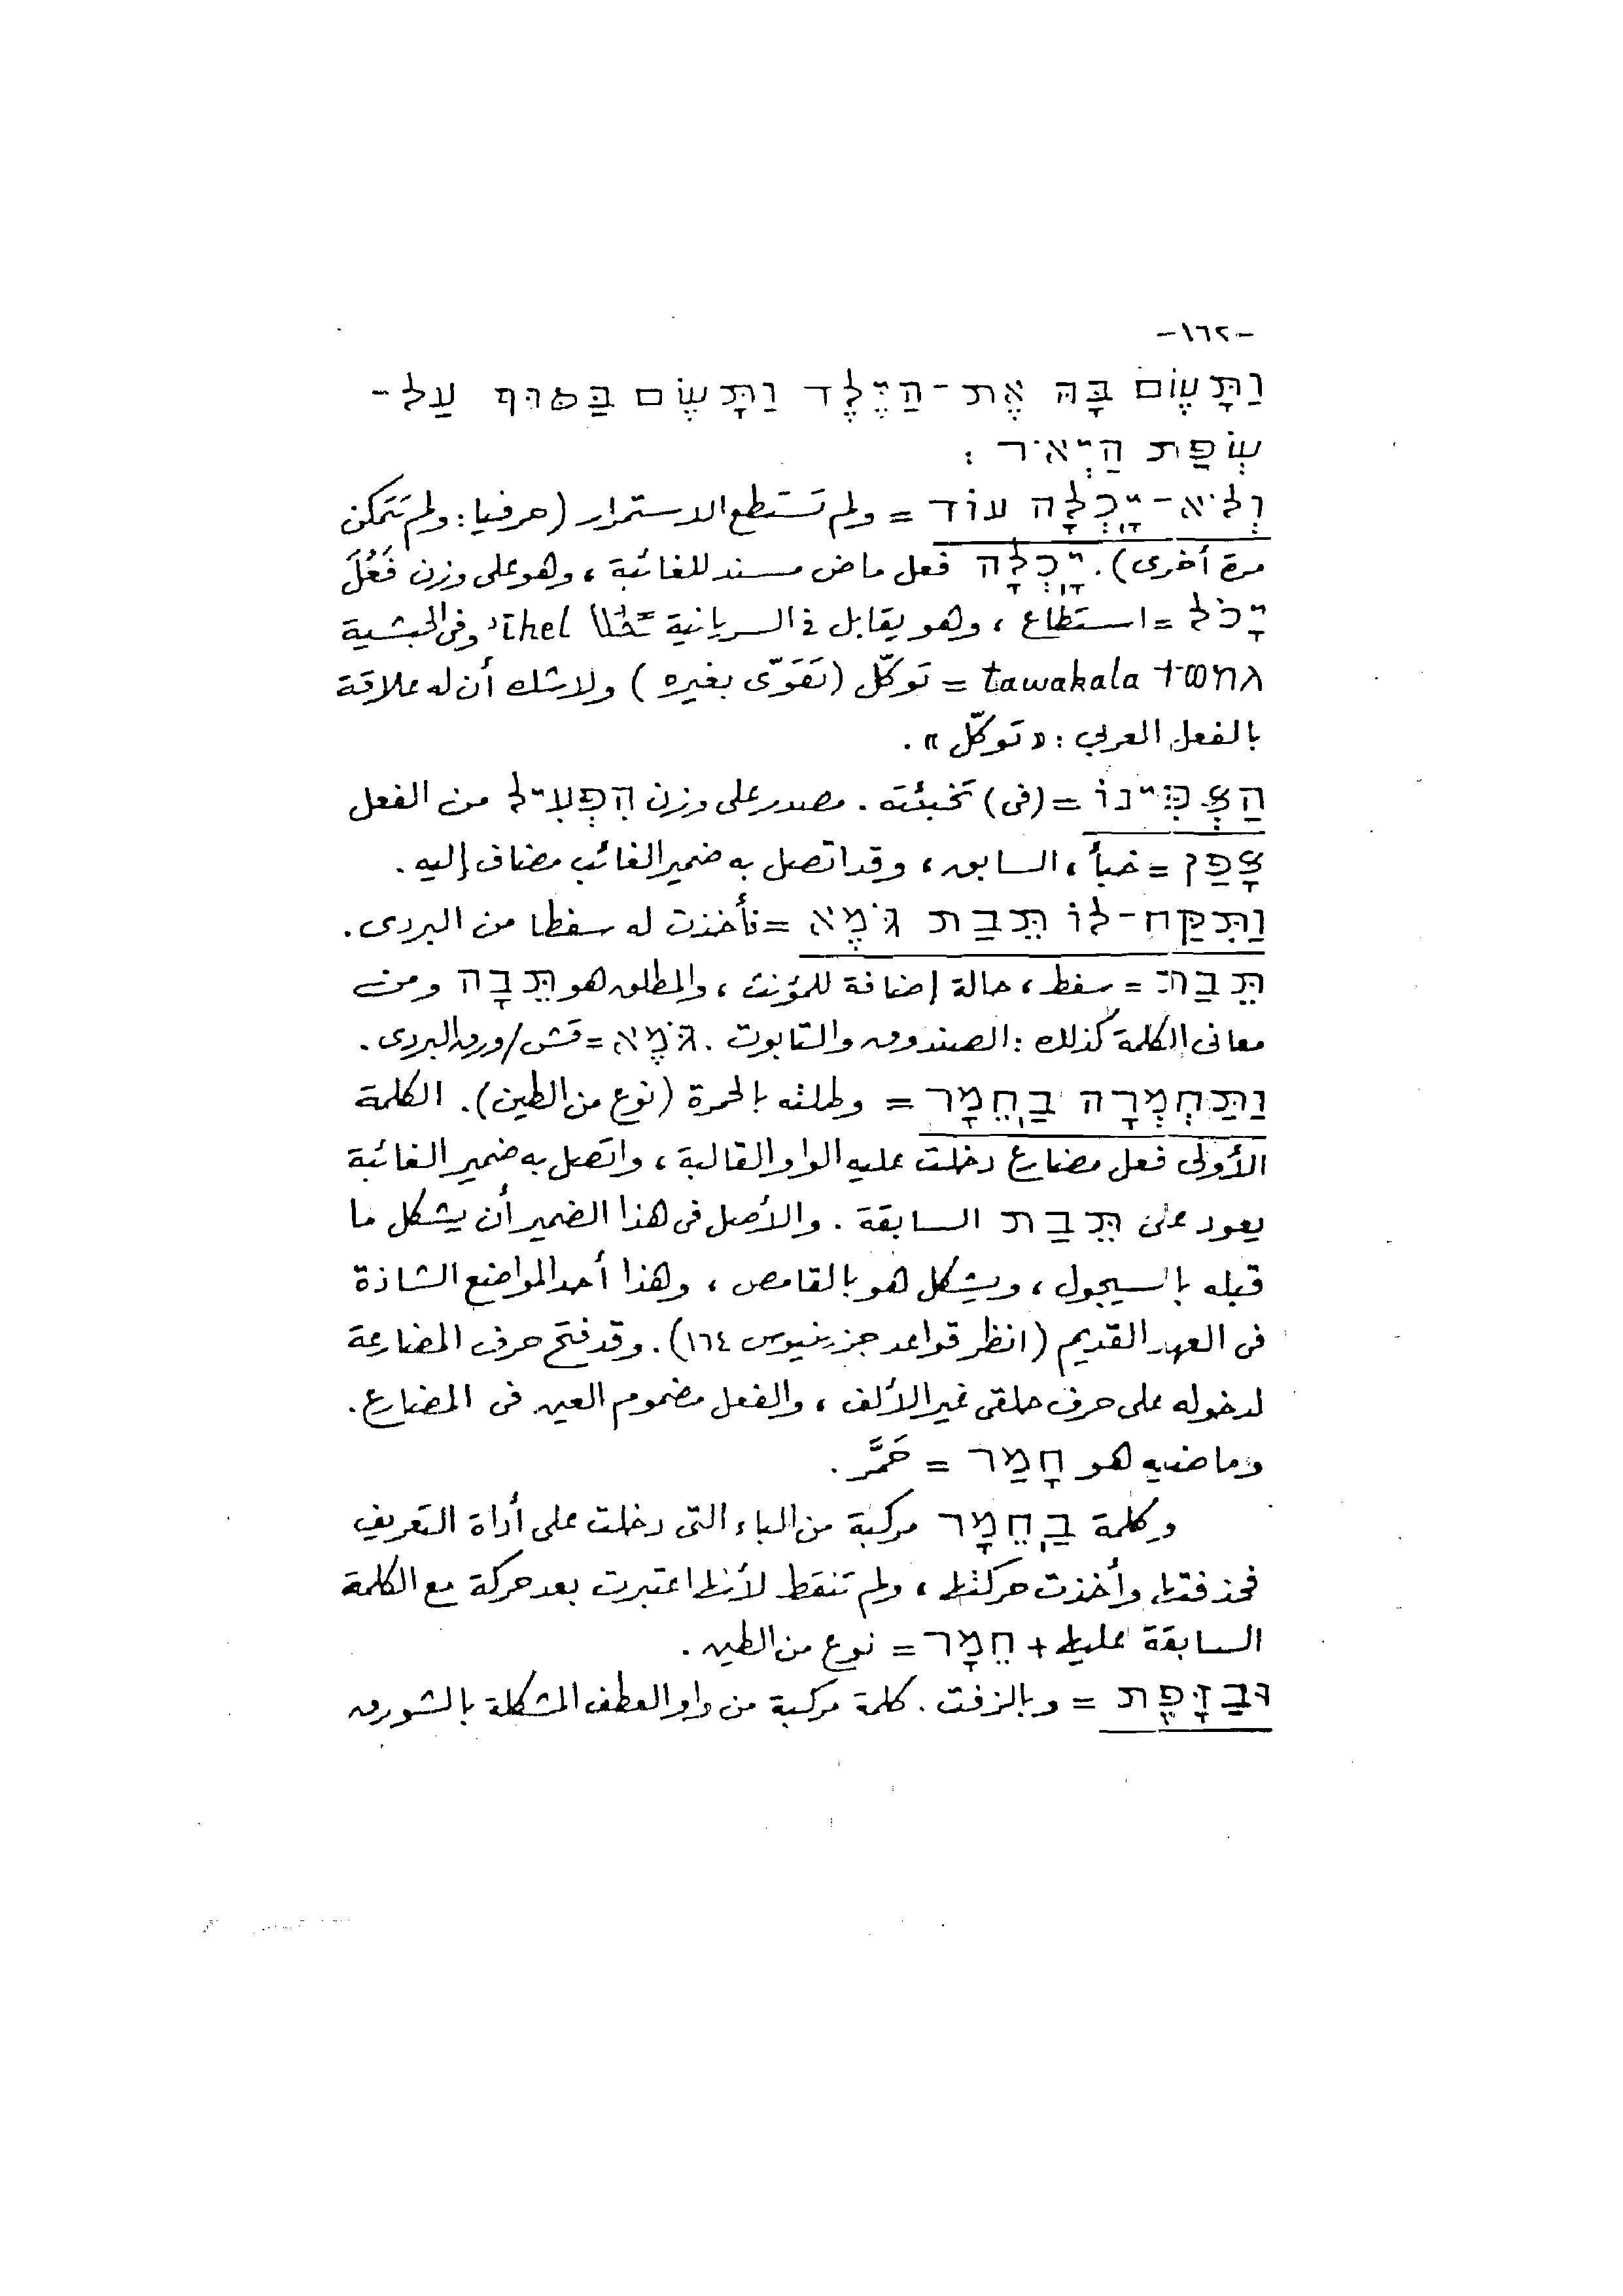 -١٦٢-
וַתָּשֶׂם בָּהּ אֶת-הַיֶּלֶד וַתָּשֶׂם בַּסּוּף עַל-
שְׂפַת הַיְאֹר :
וְלֹא-יָכְלָה עוֹד = ولم تستطع الاستمرار (حرفيا: ولم تتمكن
مرة أخرى). יָכְלָה فعل ماض مسند للغائبة ، وهو على وزن فَعُلَ
יָכֹל = استطاع ، وهو يقابل فى السريانية ihel' وفى الحبشية
tawakala ተወከለ = توكّل (تَقَوّى بغيره) ولا شك أن له علاقة
بالفعل العربى : « توكّل » .
הַצְּפִינוֹ = (فى) تخبئته . مصدر على وزن הִפְעִיל من الفعل
צָפַן = خبأ ، السابق ، وقد اتصل به ضمير الغائب مضاف إليه .
וַתִּקַּח-לוֹ תֵּבַת גֹּמֶא = فأخذت له سفطا من البردى .
תֵּבַת = سفط ، حالة إضافة للمؤنث ، والمطلق هو תֵּבָה ومن
معانى الكلمة كذلك : الصندوق والتابوت . גֹּמֶא = قش/ورق البردى .
וַתַּחְמְרָה בַחֵמָר = وطلته بالحمرة (نوع من الطين) . الكلمة
الأولى فعل مضارع دخلت عليه الواو القالبة ، واتصل به ضمير الغائبة
يعود على תֵּבַת السابقة . والأصل فى هذا الضمير أن يشكل ما
قبله بالسيجول ، ويشكل هو بالقامص ، وهذا أحد المواضع الشاذة
فى العهد القديم (انظر قواعد جزينيوس ١٦٤) . وقد فتح حرف المضارعة
لدخوله على حرف حلقى غير الألف ، والفعل مضموم العين فى المضارع .
وماضيه هو חָמַר = حَمَّر .
وكلمة בַחֵמָר مركبة من الباء التى دخلت على أداة التعريف
فحذفتها وأخذت حركتها ، ولم تنقط لأنها اعتبرت بعد حركة مع الكلمة
السابقة عليها + חֵמָר = نوع من الطين .
וּבַזָּפֶת = وبالزفت . كلمة مركبة من واو العطف المشكلة بالشورق